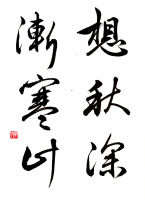 想秋深
漸寒